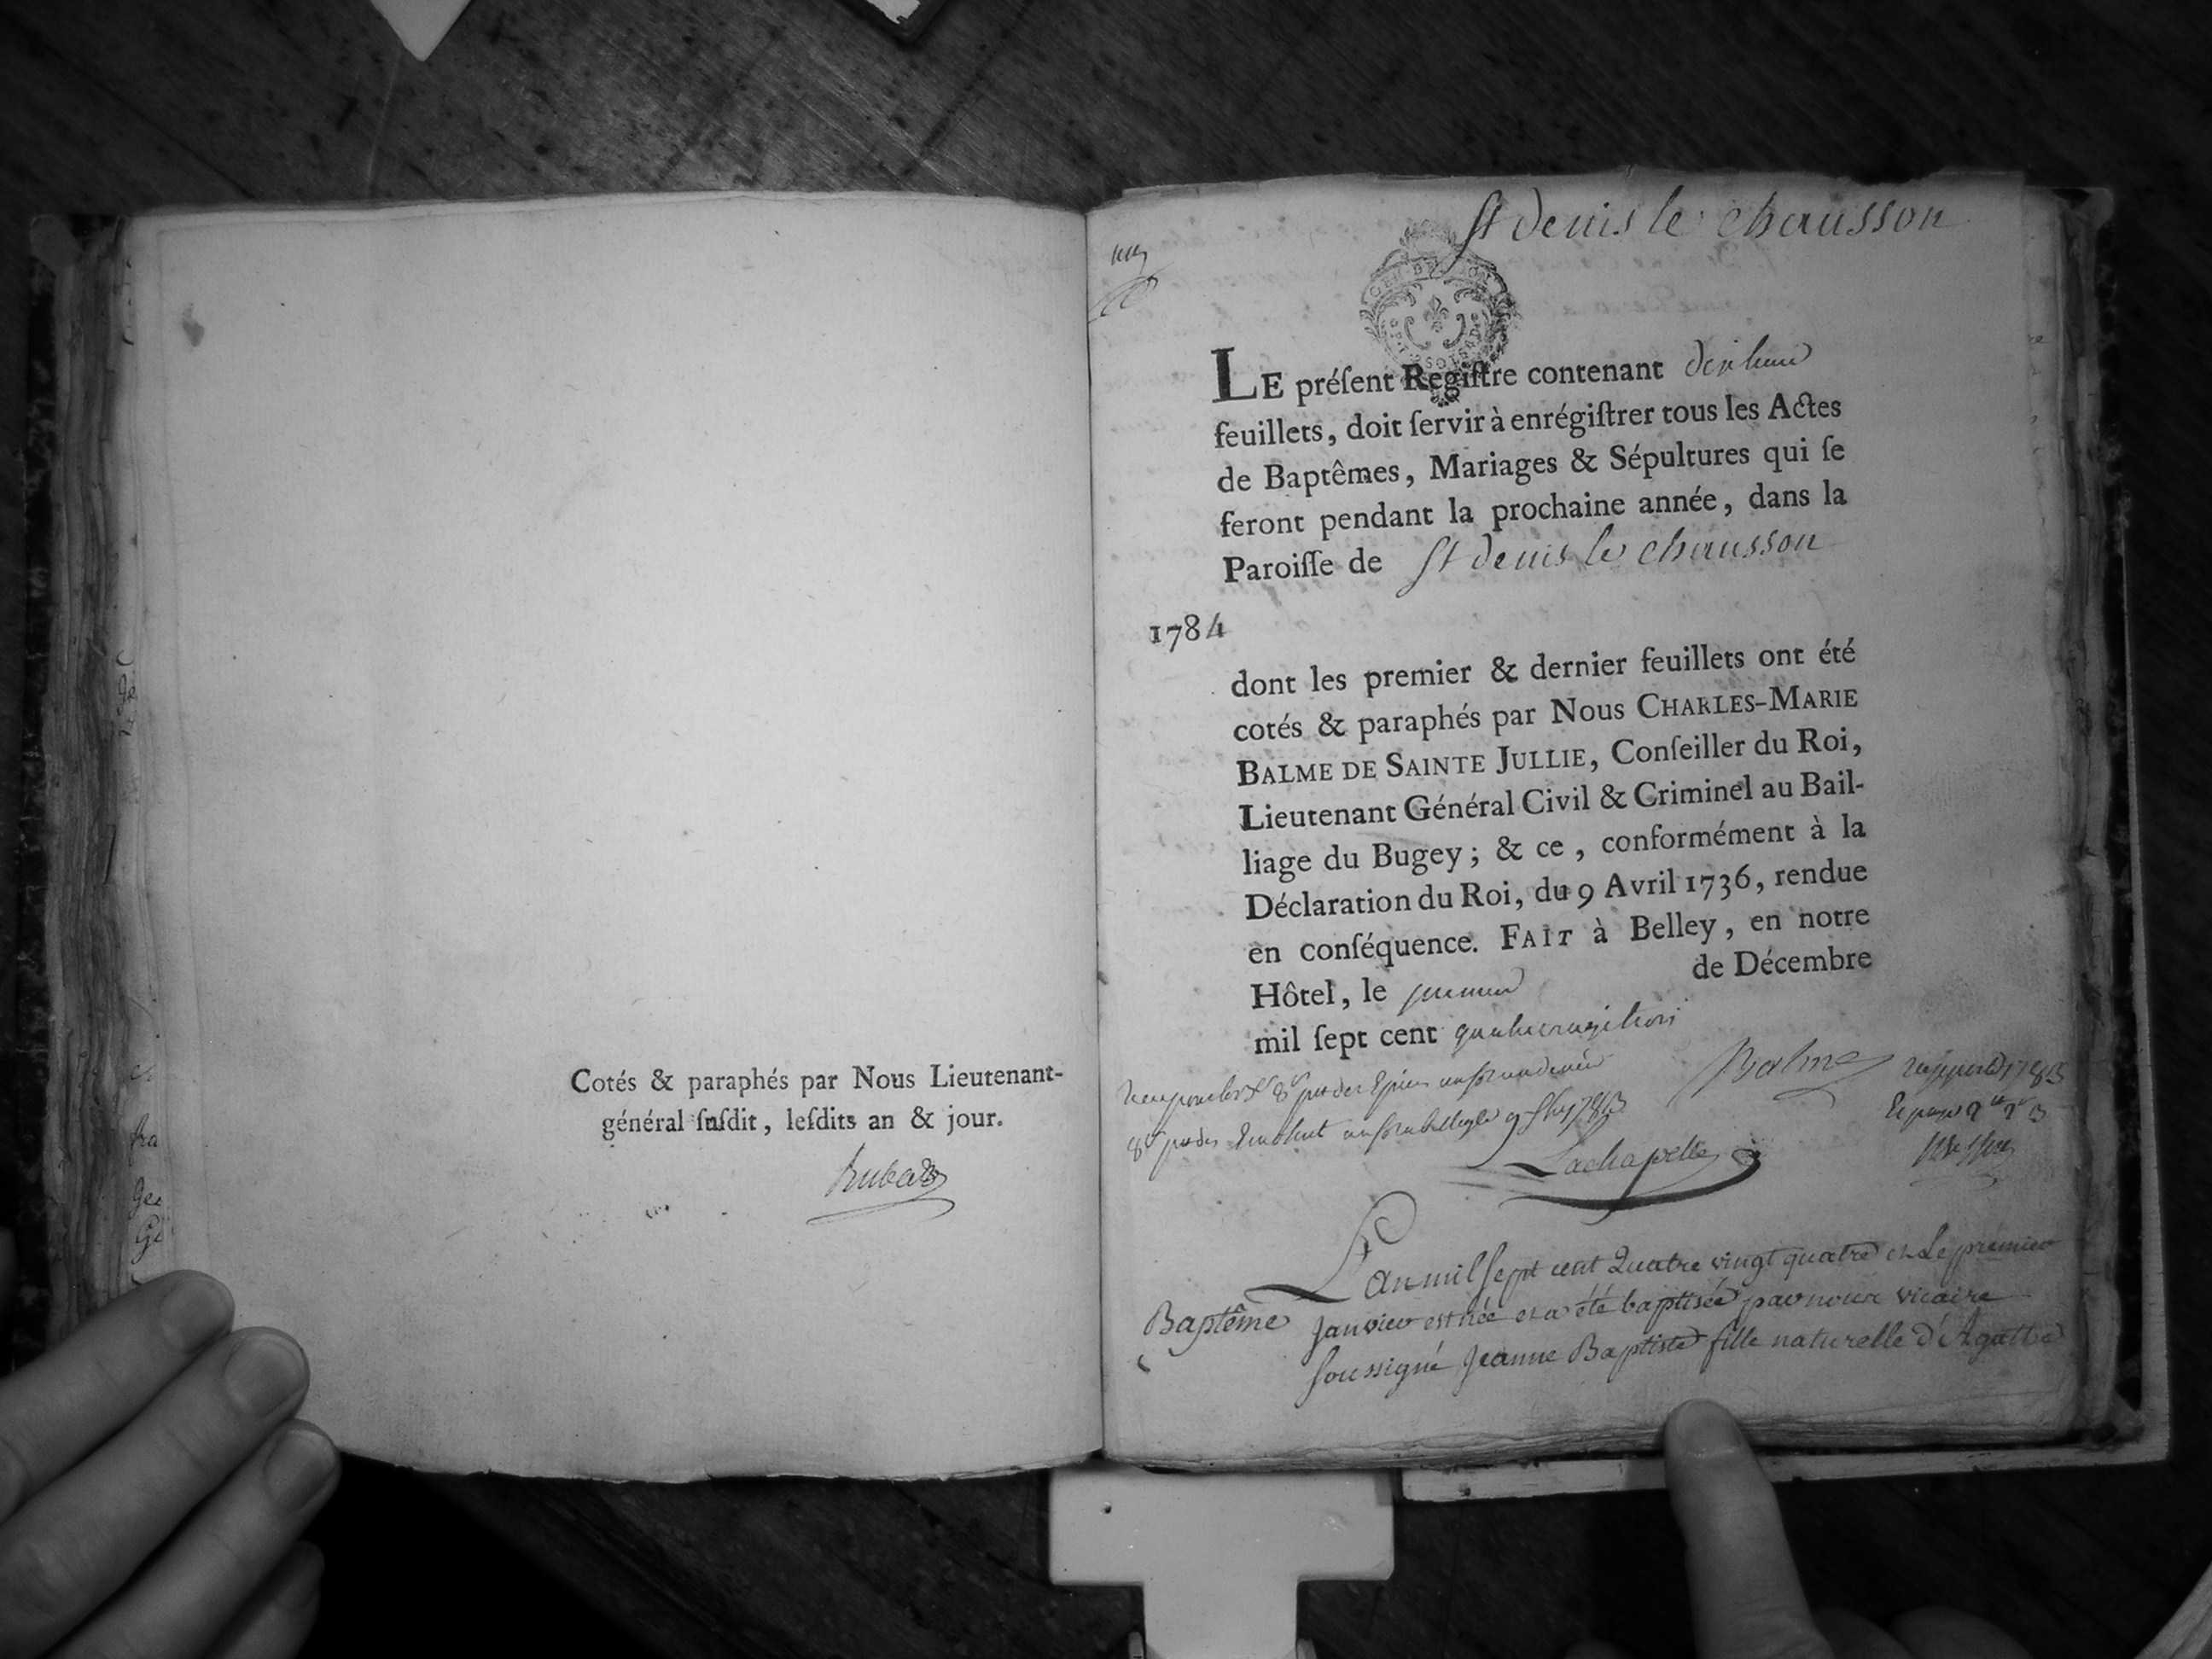 Cotés & paraphés par Nous Lieutenant-
général suſdit, leſdits an & jour.
St denis le chausson
LE préſent Regiſtre contenant dix huit
feuillets, doit ſervir à enrégiſtrer tous les Actes
de Baptêmes, Mariages & Sépultures qui ſe
feront pendant la prochaine année, dans la
Paroiſſe de St denis le chausson
1784
dont les premier & dernier feuillets ont été
cotés & paraphés par Nous CHARLES-MARIE
BALME DE SAINTE JULLIE, Conſeiller du Roi,
Lieutenant Général Civil & Criminel au Bail-
liage du Bugey; & ce, conformément à la
Déclaration du Roi, du 9 Avril 1736, rendue
en conſéquence. FAIT à Belley, en notre
Hôtel, le premier de Décembre
mil ſept cent quatrevingt trois
Balme
Lachapelle
L'an mil sept cent Quatre vingt quatre et Le premier
Baptême Janvier est née et a été baptisée par nous vicaire
soussigné Jeanne Baptiste fille naturelle d'Agathe